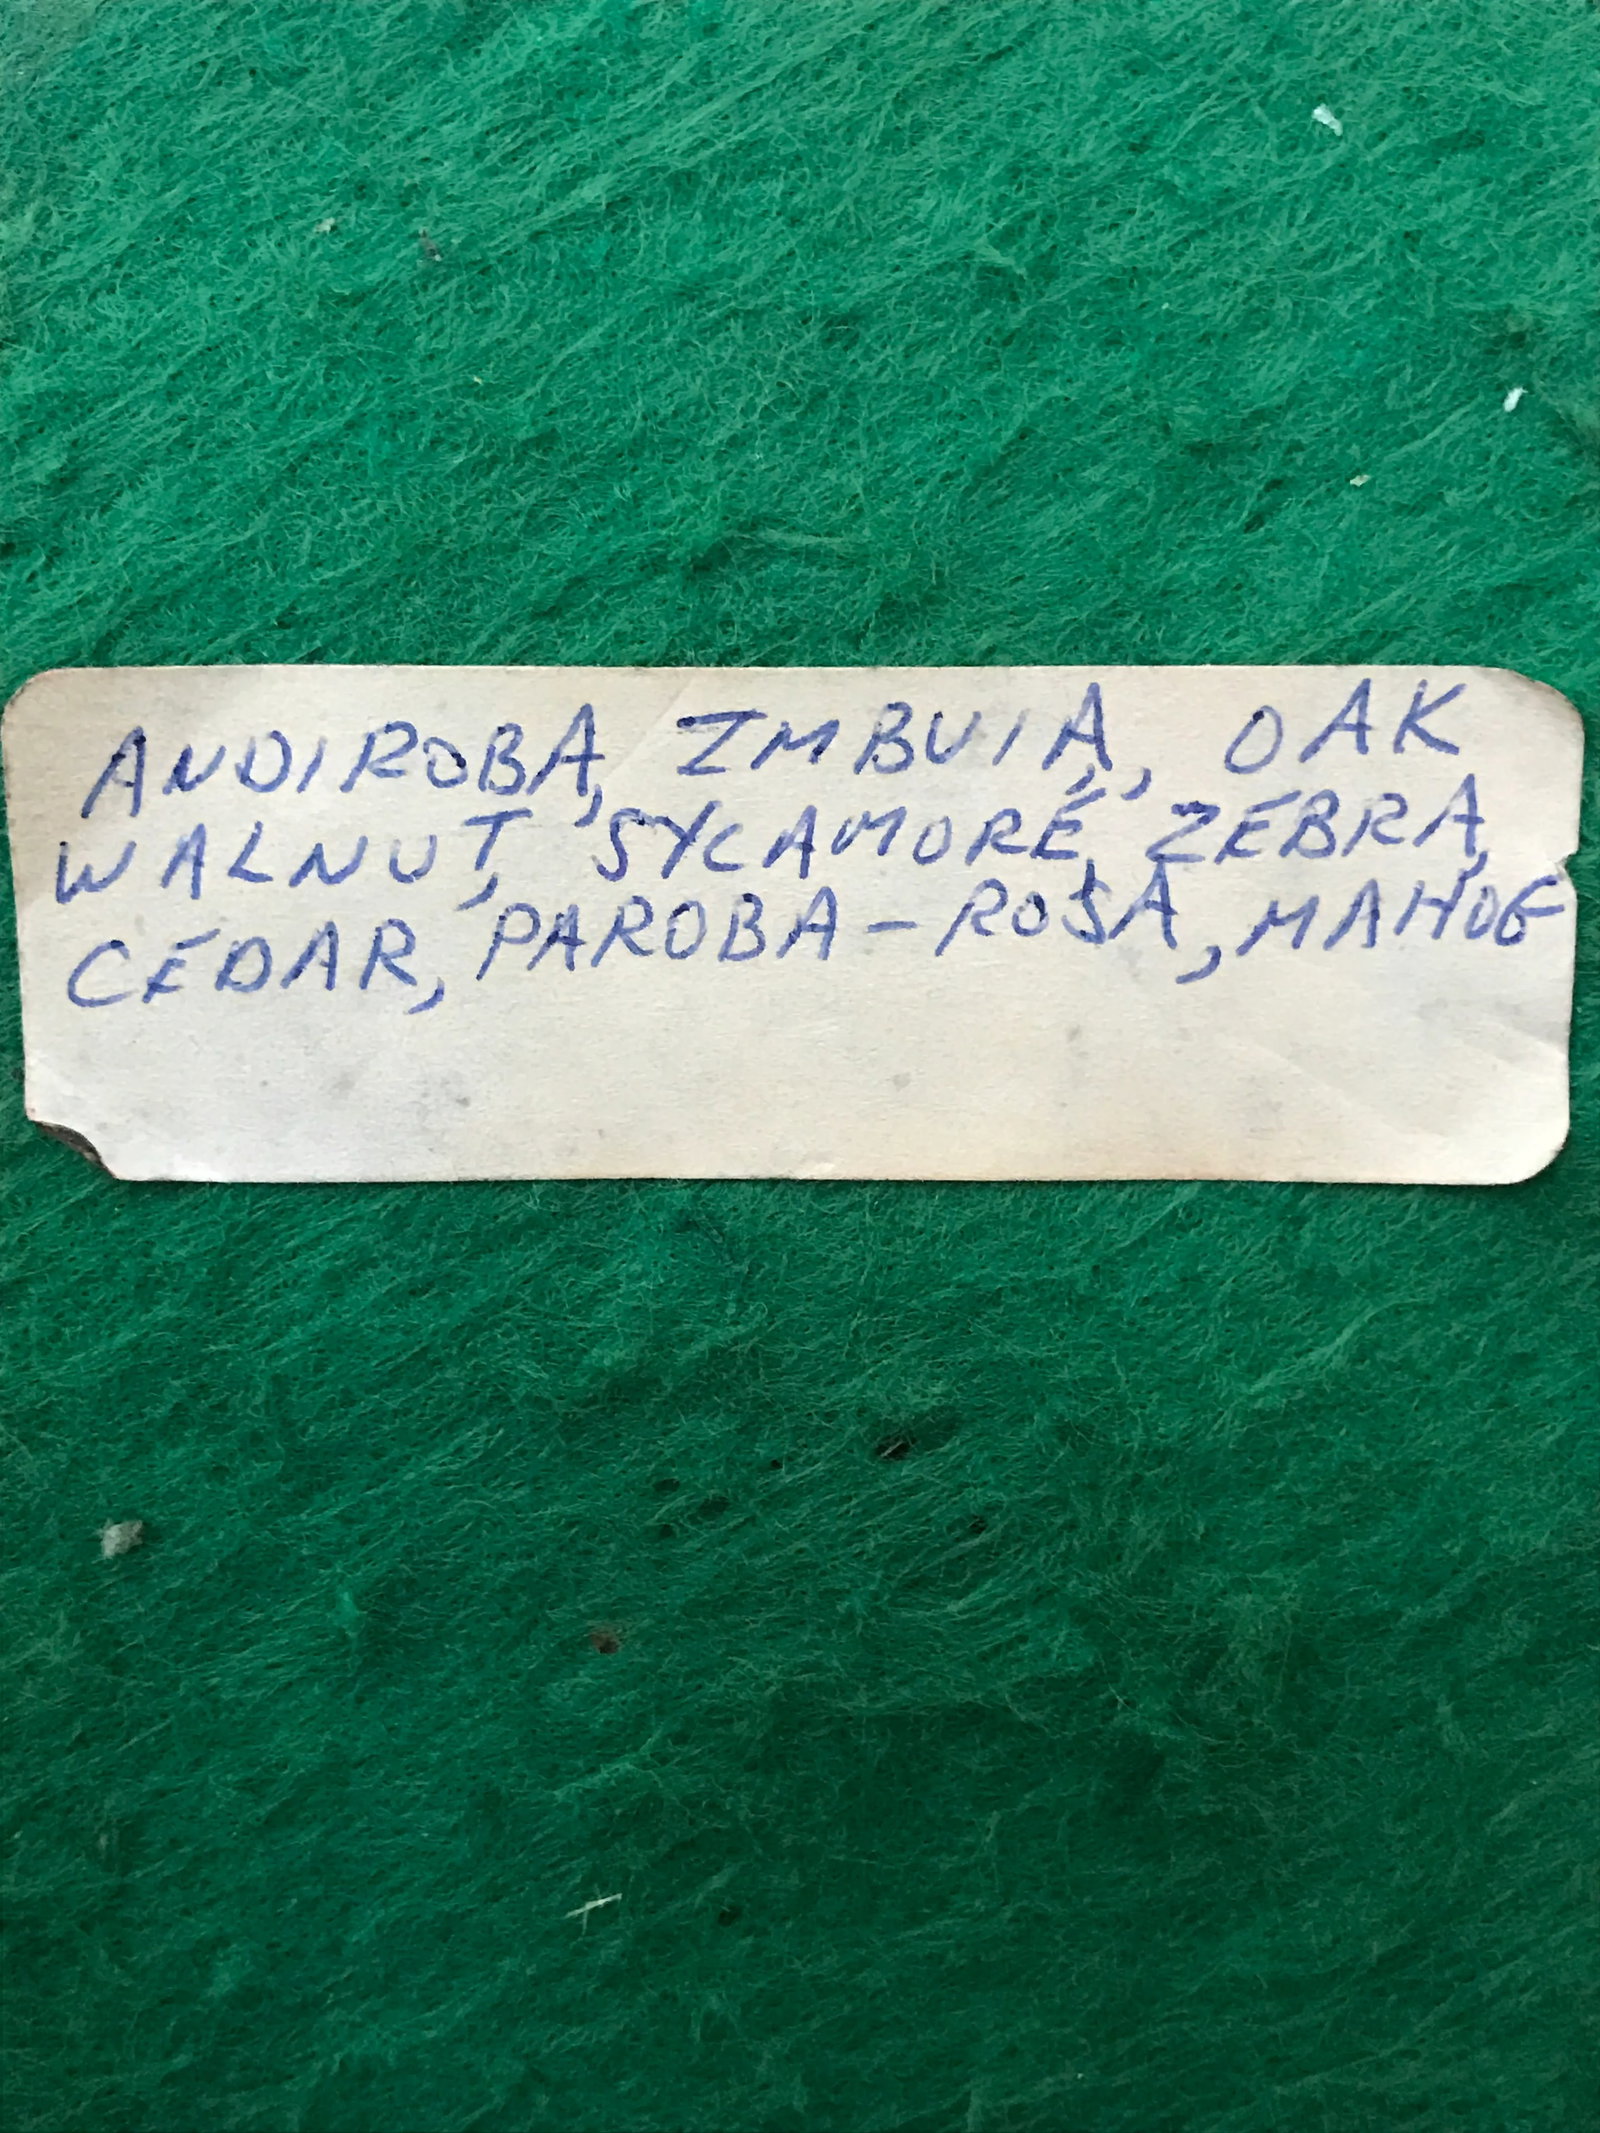 ANDIROBA, IMBUIA, OAK
WALNUT, SYCAMORE, ZEBRA,
CEDAR, PAROBA-ROSA, MAHOE